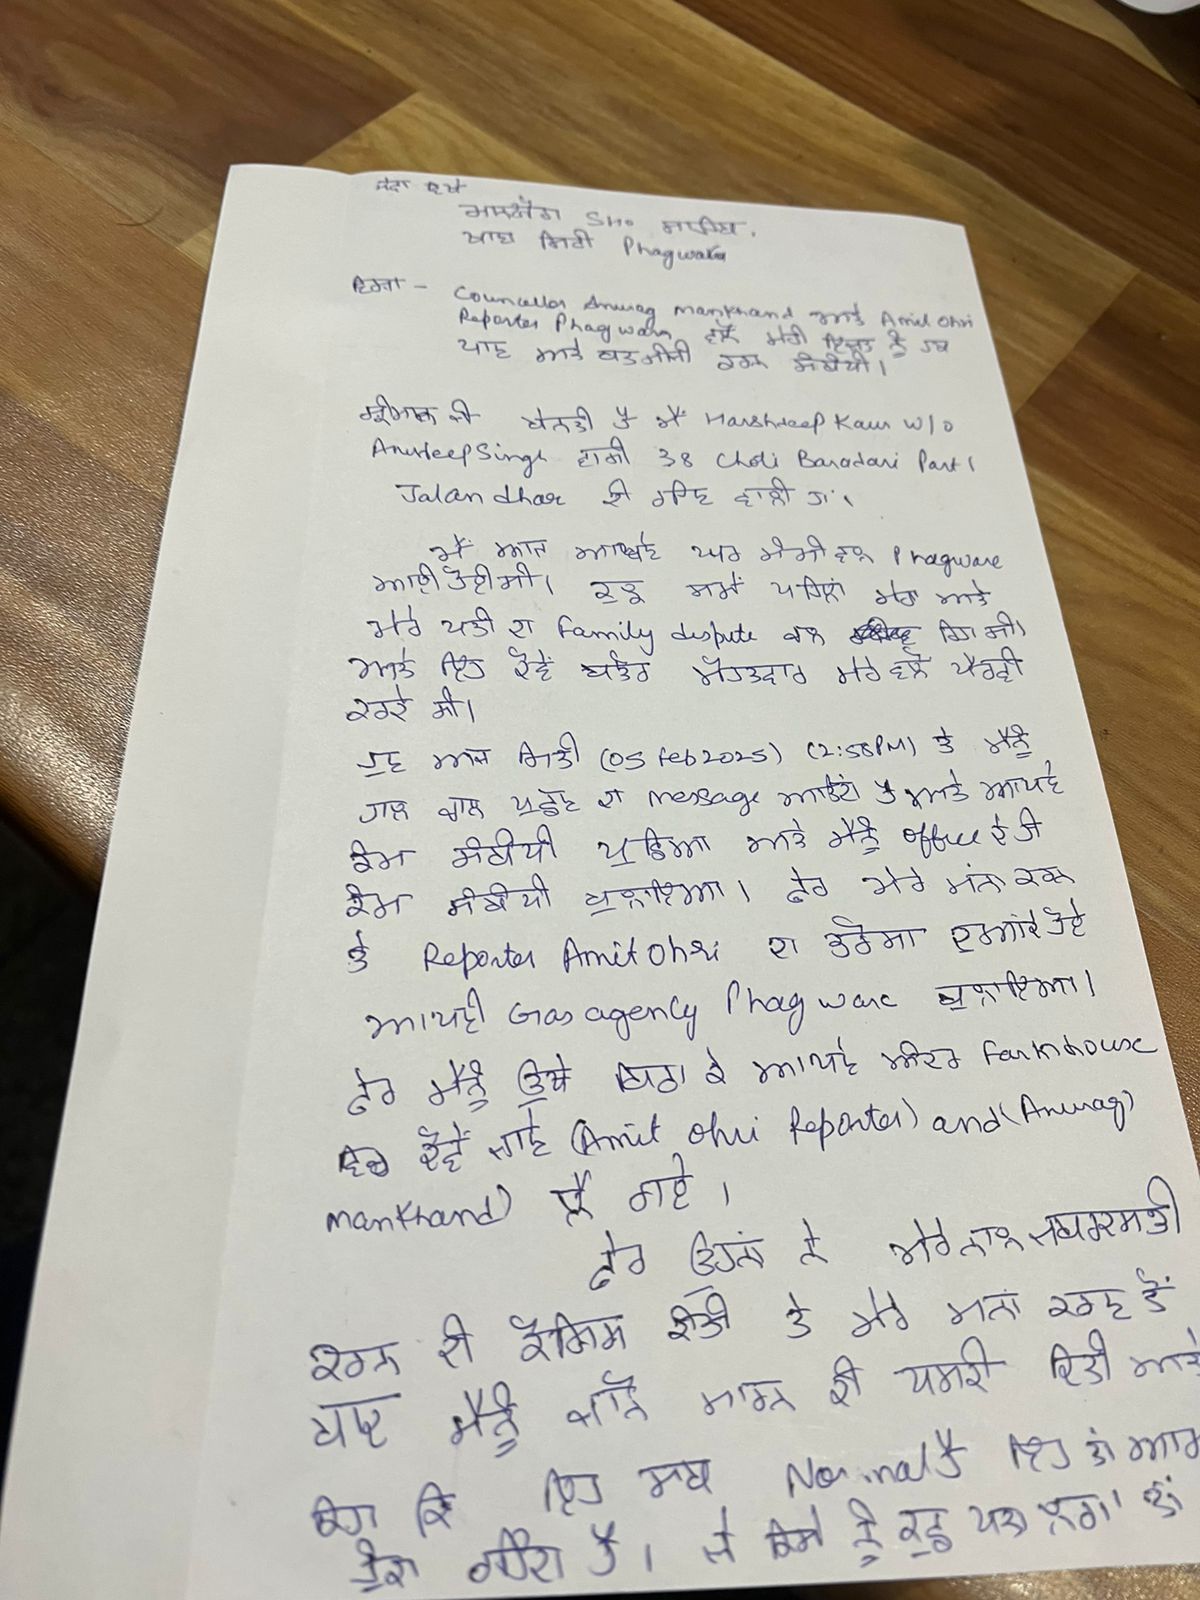 ਸੇਵਾ ਵਿਖੇ
ਮਾਨਯੋਗ SHO ਸਾਹਿਬ,
ਥਾਣਾ ਸਿਟੀ Phagwara
ਵਿਸ਼ਾ - Councellor Anurag mankhand ਅਤੇ Amit Ohri
Reporter Phagwara ਵਲੋਂ ਮੇਰੀ ਇਜ਼ਤ ਨੂੰ ਹਥ
ਪਾਣ ਅਤੇ ਬਤਮੀਜੀ ਕਰਨ ਸੰਬੰਧੀ।
ਸ਼੍ਰੀਮਾਨ ਜੀ ਬੇਨਤੀ ਹੈ ਮੈਂ Harshdeep Kaur w/o
AnudeepSingh ਵਾਸੀ 38 Choti Baradari Part 1
Jalandhar ਦੀ ਰਹਿਣ ਵਾਲੀ ਹਾਂ।
ਮੈਂ ਅਜ ਆਪਣੇ ਘਰ ਮੰਮੀ ਵਲ Phagware
ਆਈ ਹੋਈ ਸੀ। ਕੁਝ ਸਮੇਂ ਪਹਿਲਾਂ ਮੇਰਾ ਅਤੇ
ਮੇਰੇ ਪਤੀ ਦਾ family dispute ਚਲ ਰਿਹਾ ਸੀ।
ਅਤੇ ਇਹ ਦੋਵੇਂ ਬਤੌਰ ਮੋਹਤਵਾਰ ਮੇਰੇ ਵਲੋਂ ਪੈਰਵੀ
ਕਰਦੇ ਸੀ।
ਹੁਣ ਅਜ ਮਿਤੀ (05 feb 2025) (2:58PM) ਤੇ ਮੈਨੂੰ
ਹਾਲ ਚਾਲ ਪੁਛਣ ਦਾ message ਆਉਂਦਾ ਹੈ ਅਤੇ ਆਪਣੇ
ਕੇਸ ਸੰਬੰਧੀ ਪੁਛਿਆ ਅਤੇ ਮੈਨੂੰ office ਦੇ ਹੀ
ਕੇਸ ਸੰਬੰਧੀ ਬੁਲਾਇਆ। ਫੇਰ ਮੇਰੇ ਮਨਾ ਕਰਨ
ਤੇ Reporter Amit Ohri ਦਾ ਭਰੋਸਾ ਦੁਆਂਦੇ ਹੋਏ
ਆਪਣੀ Gas agency Phagware ਬੁਲਾਇਆ।
ਫੇਰ ਮੈਨੂੰ ਉਥੇ ਬਿਠਾ ਕੇ ਆਪਣੇ ਅੰਦਰ farmhouse
ਵਿਚ ਦੋਵੇਂ ਜਾਣੇ (Amit Ohri Reporter) and (Anurag
mankhand) ਲੈ ਗਏ।
ਫੇਰ ਉਹਨਾਂ ਨੇ ਮੇਰੇ ਨਾਲ ਜਬਰਦਸਤੀ
ਕਰਨ ਦੀ ਕੋਸ਼ਿਸ ਕੀਤੀ ਤੇ ਮੇਰੇ ਮਨਾਂ ਕਰਣ ਤੋਂ
ਬਾਦ ਮੈਨੂੰ ਜਾਨੋਂ ਮਾਰਨ ਦੀ ਧਮਕੀ ਦਿਤੀ ਅਤੇ
ਕਿਹਾ ਕਿ ਇਹ ਸਬ Normal ਹੈ ਇਹ ਤਾਂ ਆਮ
ਹੁੰਦਾ ਰਹਿੰਦਾ ਹੈ। ਜੇ ਕਿਸੇ ਨੂੰ ਕੁਛ ਪਤਾ ਲਗਾ ਤਾਂ